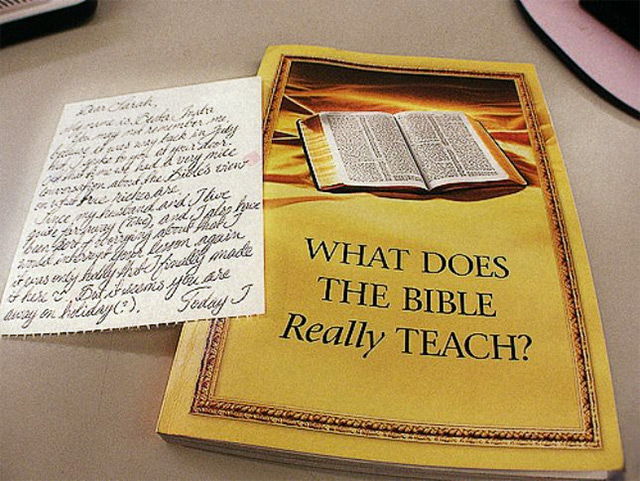 Dear Sarah,
My name is
You may not remember me,
it was way back in July
I spoke to you at your door.
At that time we had a very nice
conversation about the Bible's view
on what true riches are.
Since my husband and I live
quite far away (), and I also have
been sort of worrying about that I
would interrupt your lesson again
it was only today that I finally made
it here. But it seems you are
away on holiday(?). Today I
WHAT DOES
THE BIBLE
Really TEACH?